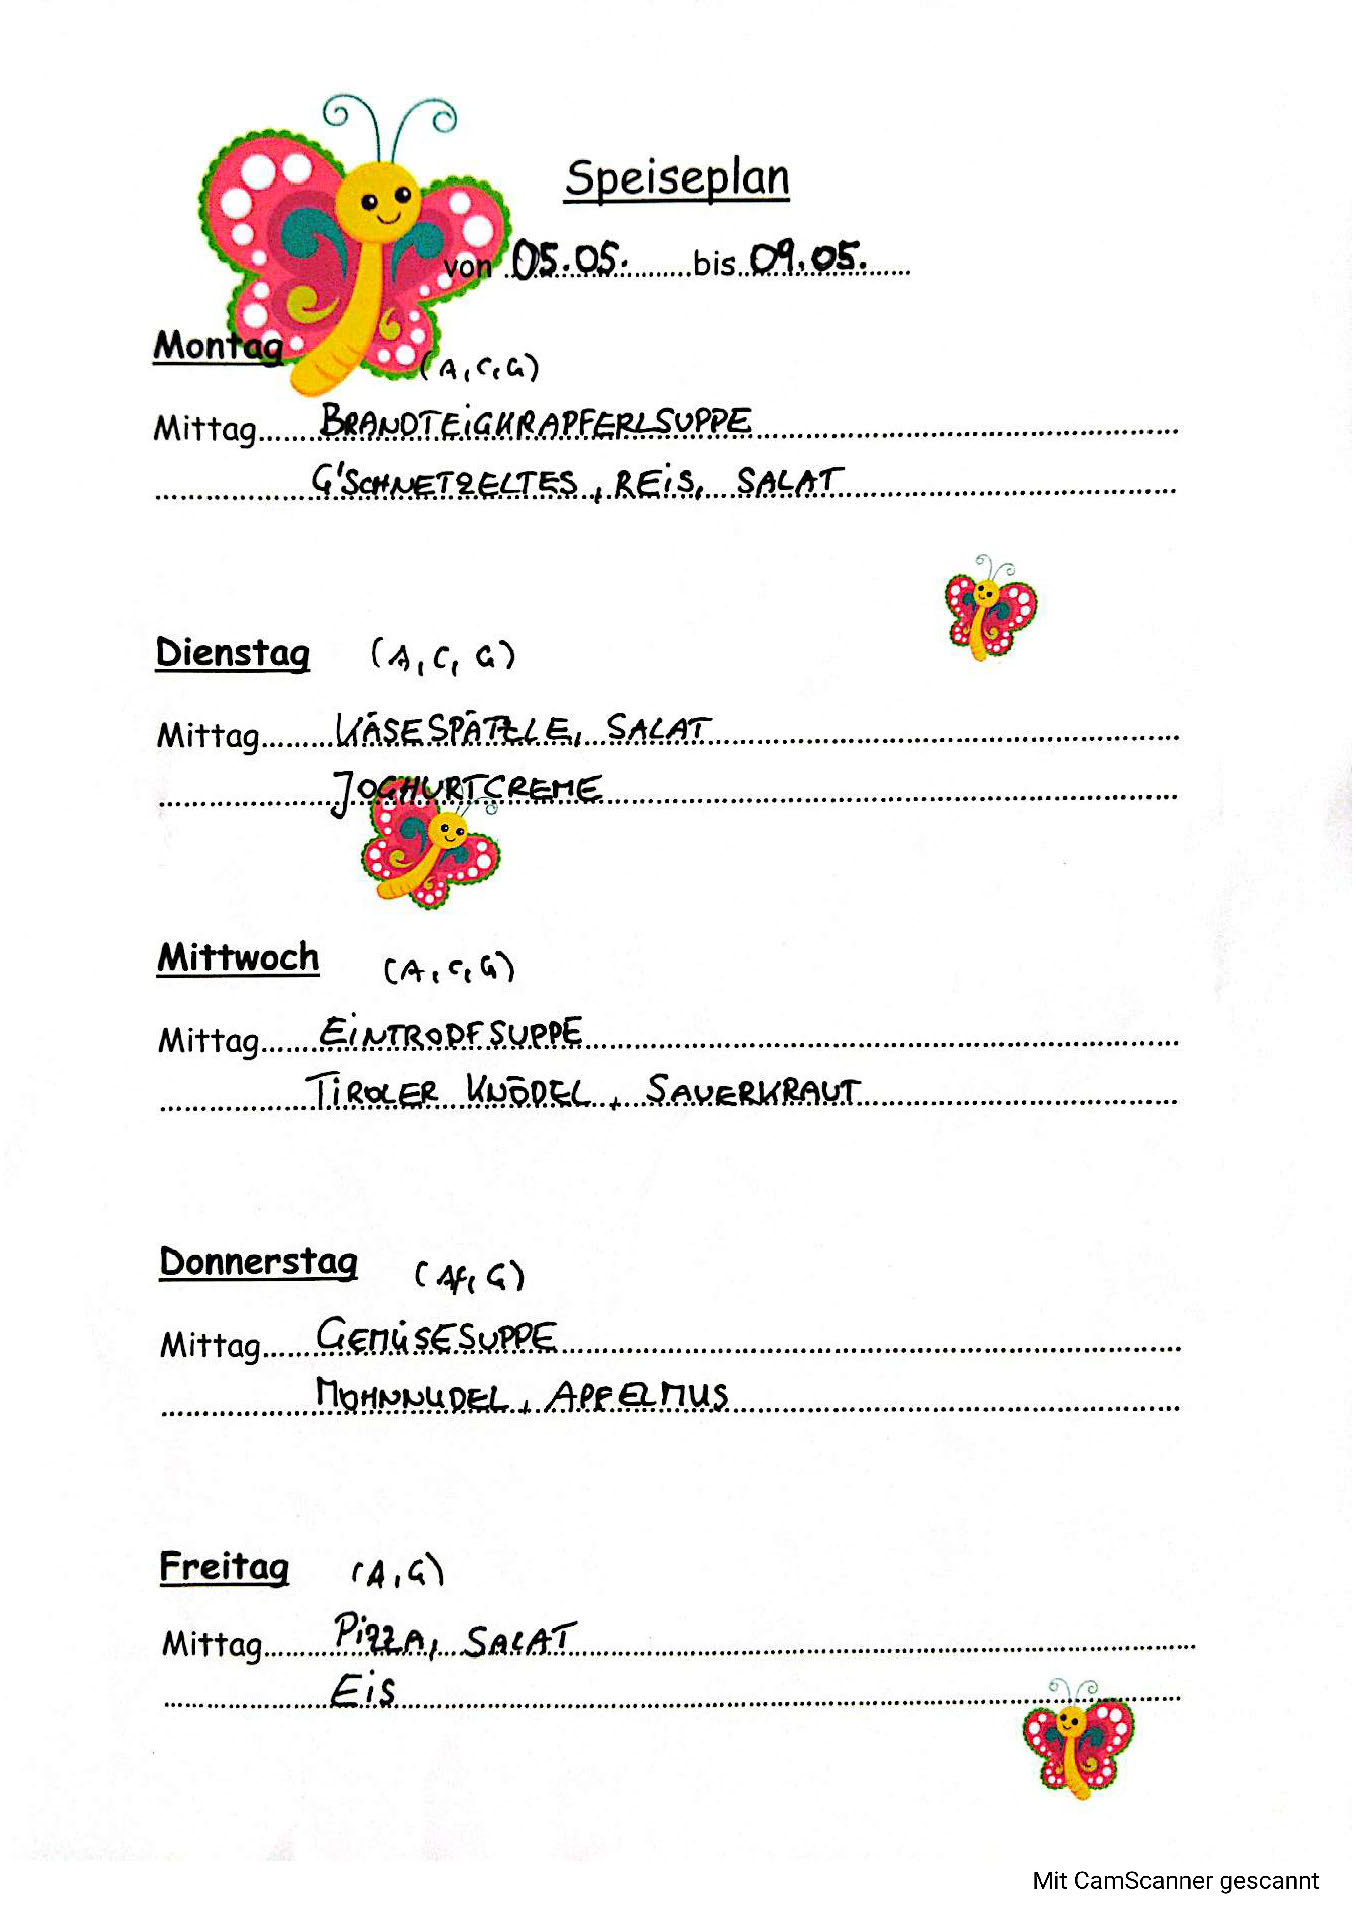 Speiseplan
von 05.05. bis 09.05.
Montag (A, C, G)
Mittag BRANDTEIGKRAPFERLSUPPE
G'SCHNETZELTES, REIS, SALAT
Dienstag (A, C, G)
Mittag KÄSESPÄTZLE, SALAT
JOGHURTCREME
Mittwoch (A, C, G)
Mittag EINTROPFSUPPE
TIROLER KNÖDEL, SAUERKRAUT
Donnerstag (Af, G)
Mittag GEMÜSESUPPE
MOHNNUDEL, APFELMUS
Freitag (A, G)
Mittag PIZZA, SALAT
EIS
Mit CamScanner gescannt